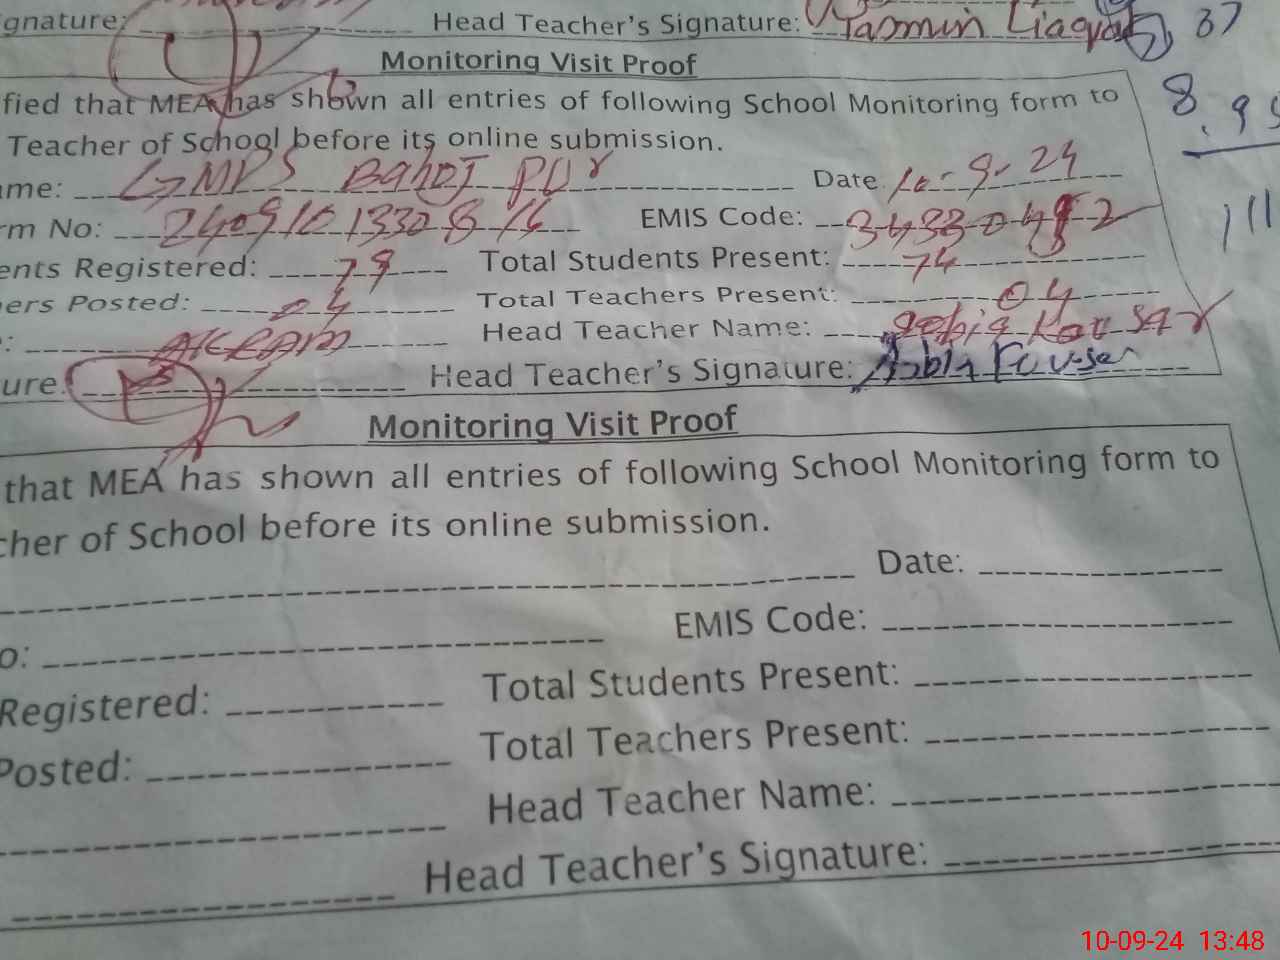 gnature: Head Teacher's Signature: Yasmin Liaqat 37
Monitoring Visit Proof
8.99
fied that MEA has shown all entries of following School Monitoring form to
Teacher of School before its online submission.
ame: GMPS Date. 10-9-24
rm No: EMIS Code: 111
ents Registered: Total Students Present: 74
ers Posted: 04 Total Teachers Present: 04
: AKRAM Head Teacher Name: Kousar
ure. Head Teacher's Signature:
Monitoring Visit Proof
that MEA has shown all entries of following School Monitoring form to
cher of School before its online submission.
Date:
o: EMIS Code:
Registered: Total Students Present:
Posted: Total Teachers Present:
Head Teacher Name:
Head Teacher's Signature:
10-09-24 13:48